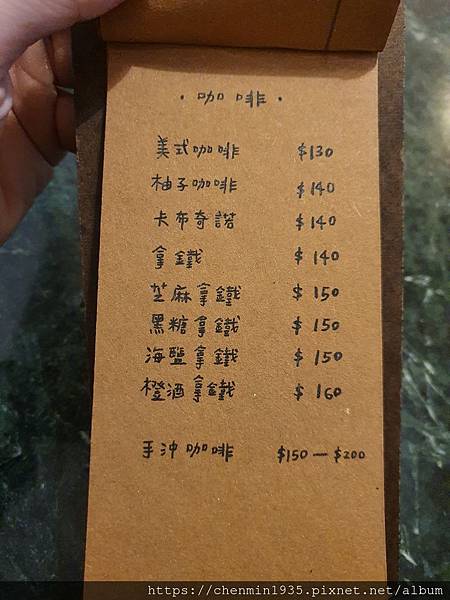 · 咖啡 ·
美式咖啡 $130
柚子咖啡 $140
卡布奇諾 $140
拿鐵 $140
芝麻拿鐵 $150
黑糖拿鐵 $150
海鹽拿鐵 $150
橙酒拿鐵 $160
手沖咖啡 $150－$200
https://chenmin1935.pixnet.net/album